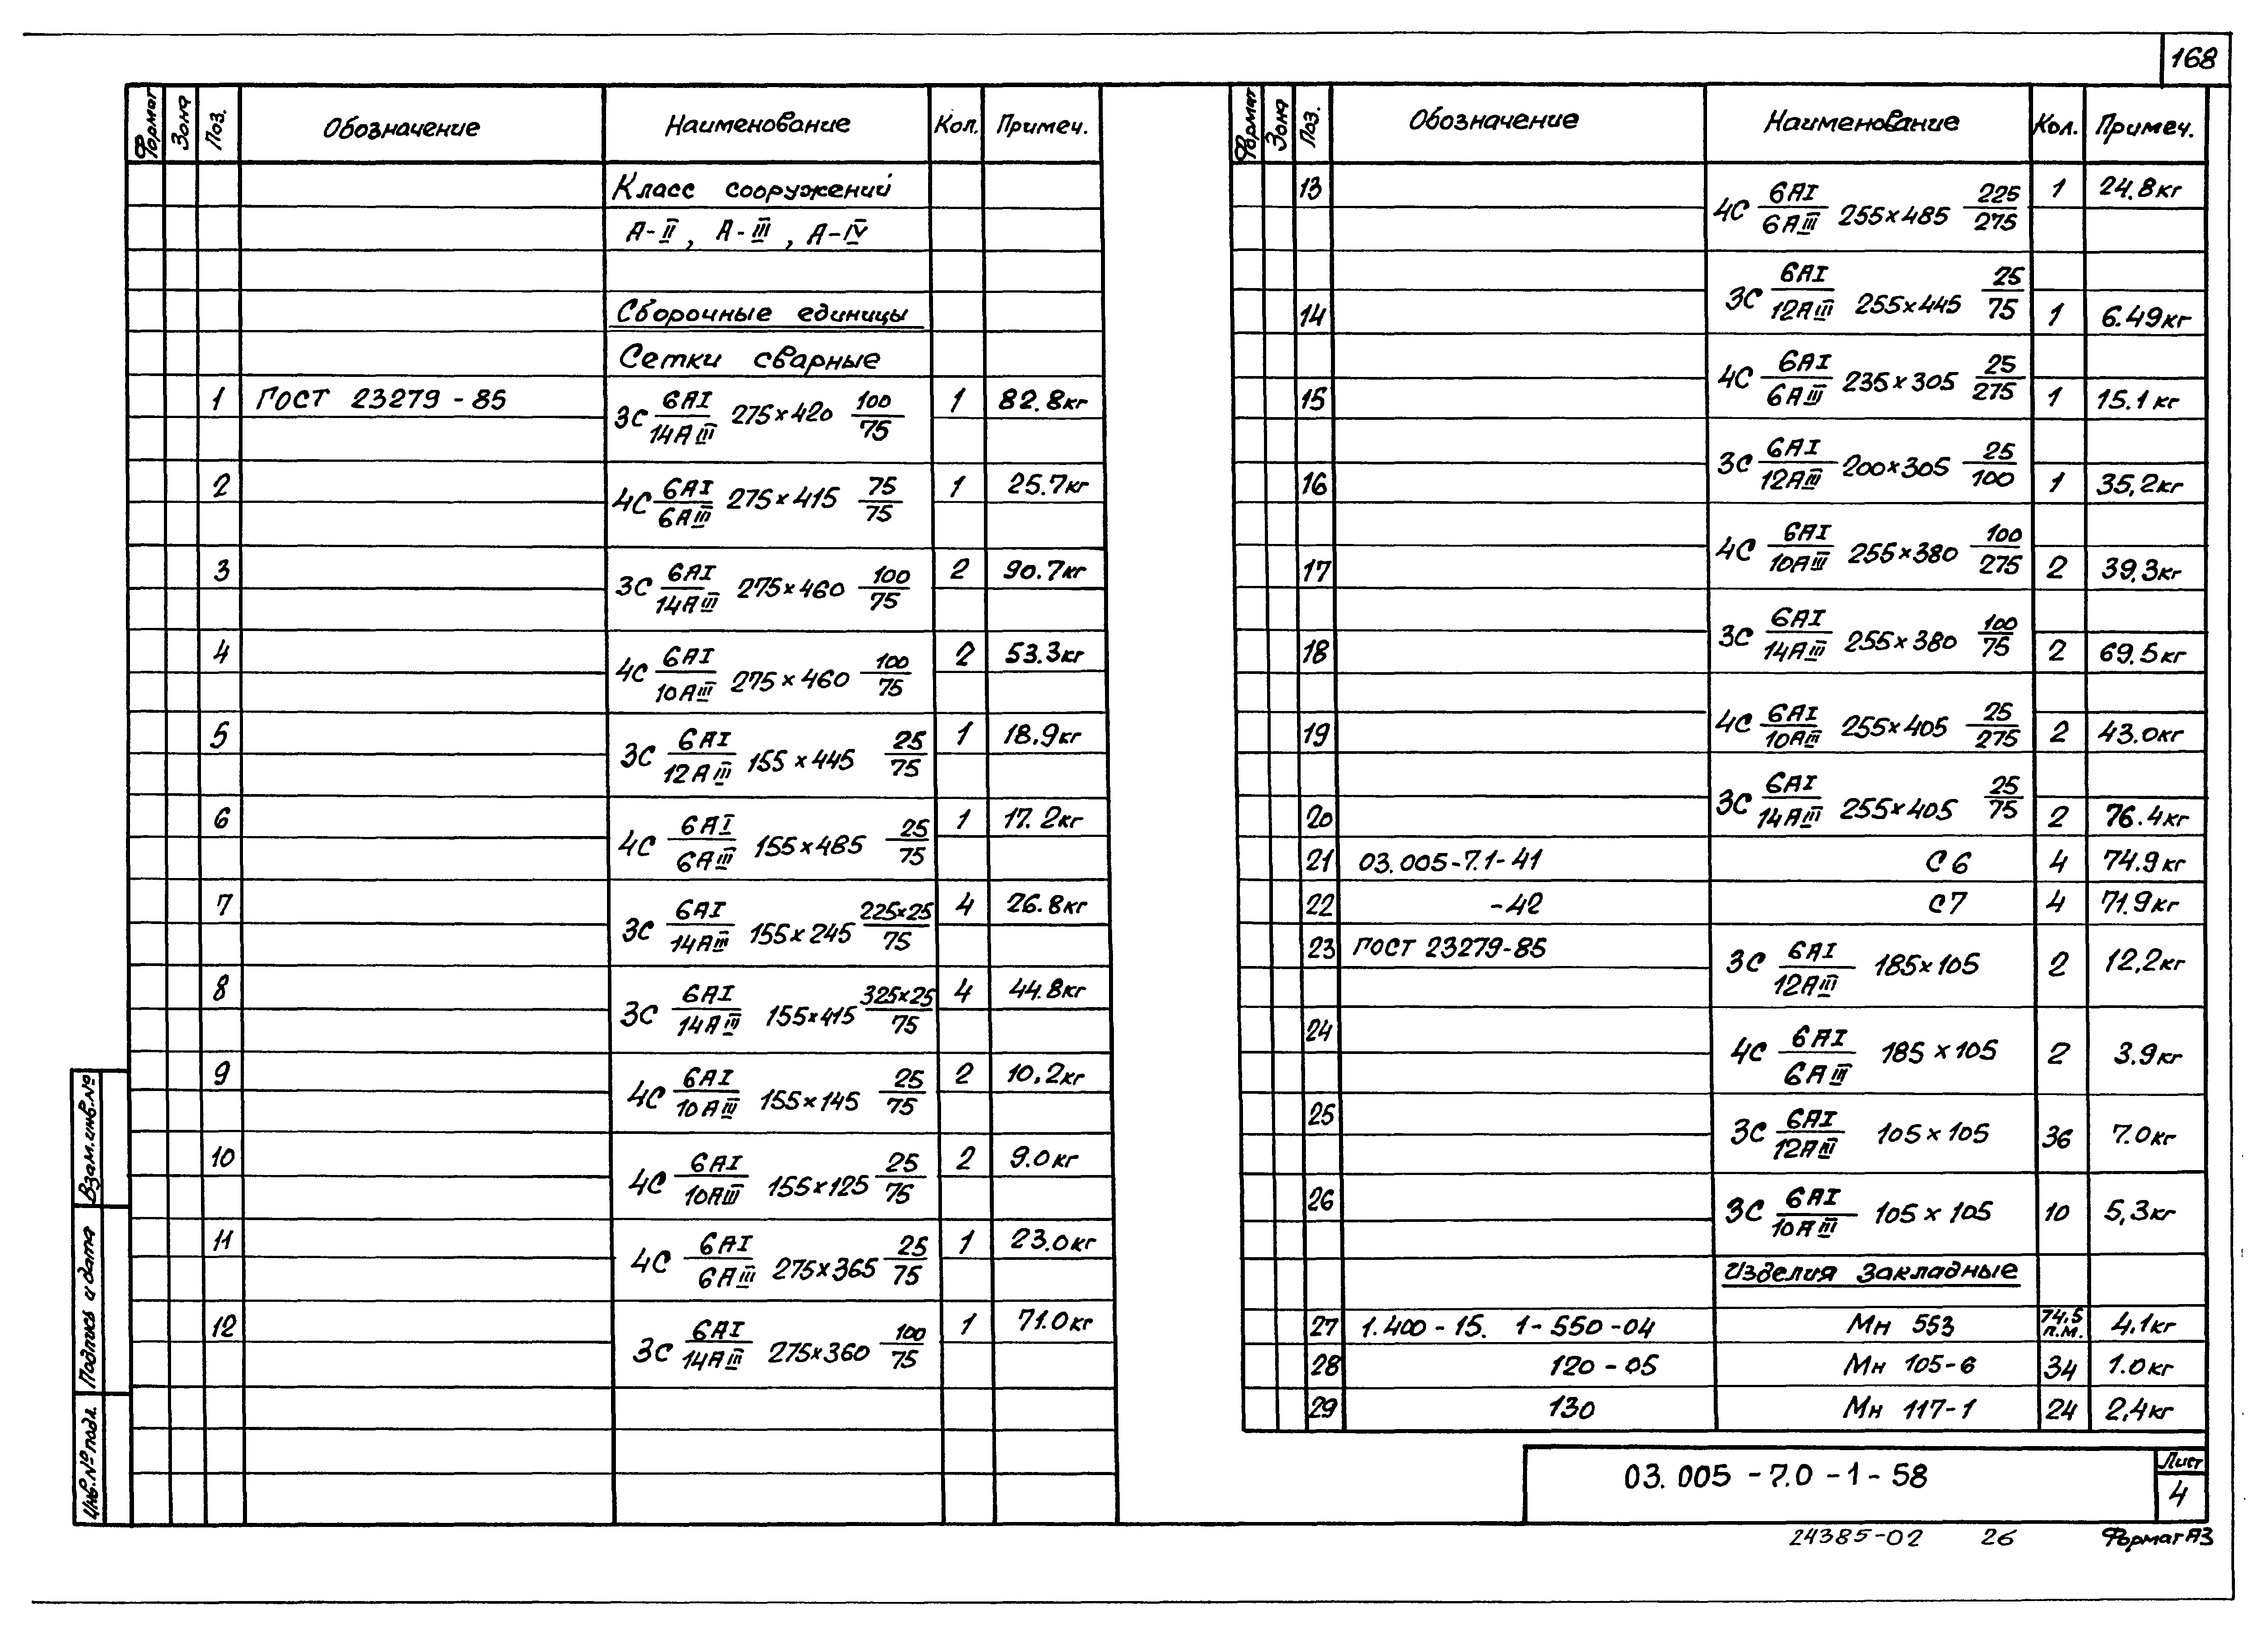 168
Формат Зона Поз. Обозначение Наименование Кол. Примеч.
Класс сооружений
А-II, А-III, А-IV
Сборочные единицы
Сетки сварные
1 ГОСТ 23279-85 3С 6АI/14АIII 275×420 100/75 1 82.8кг
2 4С 6АI/6АIII 275×415 75/75 1 25.7кг
3 3С 6АI/14АIII 275×460 100/75 2 90.7кг
4 4С 6АI/10АIII 275×460 100/75 2 53.3кг
5 3С 6АI/12АIII 155×445 25/75 1 18.9кг
6 4С 6АI/6АIII 155×485 25/75 1 17.2кг
7 3С 6АI/14АIII 155×245 225×25/75 4 26.8кг
8 3С 6АI/14АIV 155×415 325×25/75 4 44.8кг
9 4С 6АI/10АIII 155×145 25/75 2 10.2кг
10 4С 6АI/10АIII 155×125 25/75 2 9.0кг
11 4С 6АI/6АIII 275×365 25/75 1 23.0кг
12 3С 6АI/14АIII 275×360 100/75 1 71.0кг
Формат Зона Поз. Обозначение Наименование Кол. Примеч.
13 4С 6АI/6АIII 255×485 225/275 1 24.8кг
14 3С 6АI/12АIII 255×445 25/75 1 6.49кг
15 4С 6АI/6АIII 235×305 25/275 1 15.1кг
16 3С 6АI/12АIII 200×305 25/100 1 35,2кг
17 4С 6АI/10АIII 255×380 100/275 2 39.3кг
18 3С 6АI/14АIII 255×380 100/75 2 69.5кг
19 4С 6АI/10АIII 255×405 25/275 2 43.0кг
20 3С 6АI/14АIII 255×405 25/75 2 76.4кг
21 03.005-7.1-41 С6 4 74.9кг
22 -42 С7 4 71.9кг
23 ГОСТ 23279-85 3С 6АI/12АIII 185×105 2 12,2кг
24 4С 6АI/6АIII 185×105 2 3.9кг
25 3С 6АI/12АIII 105×105 36 7.0кг
26 3С 6АI/10АIII 105×105 10 5,3кг
Изделия закладные
27 1.400-15. 1-550-04 Мн 553 74,5 п.м. 4.1кг
28 120-05 Мн 105-6 34 1.0кг
29 130 Мн 117-1 24 2,4кг
Взам.инв.№
Подпись и дата
Инв.№ подл.
03.005-7.0-1-58
Лист
4
24385-02 26 Формат А3